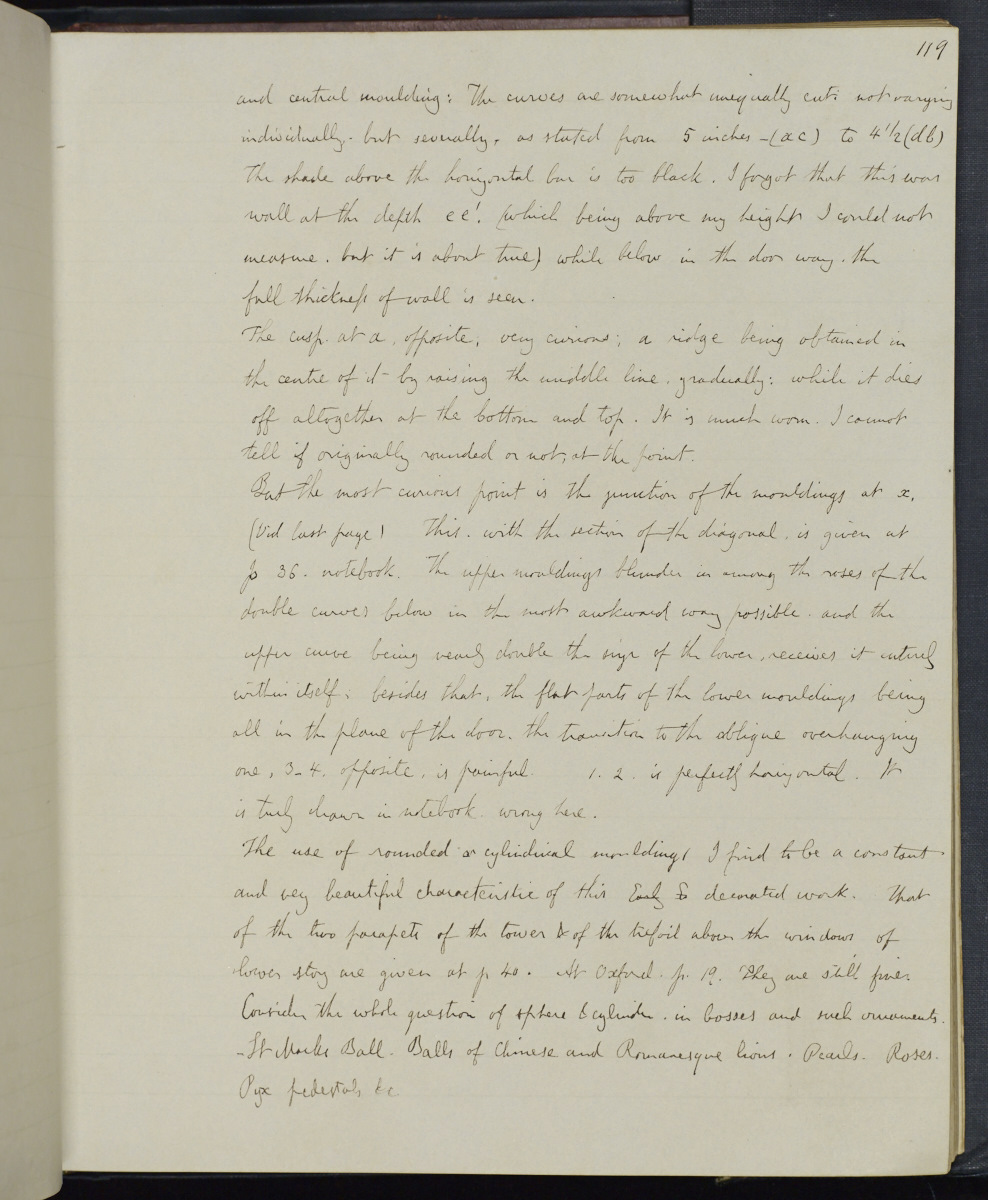 119
and central moulding: The curves are somewhat unequally cut: not varying
individually. but severally, as stated from 5 inches - (a c) to 4 1/2 (d b)
The shade above the horizontal bar is too black. I forgot that this was
wall at the depth e e'. (which being above my height I could not
measure. but it is about true) while below in the door way. the
full thickness of wall is seen.
The cusp. at a, opposite, very curious; a ridge being obtained in
the centre of it by raising the middle line, gradually: while it dies
off altogether at the bottom and top. It is much worn. I cannot
tell if originally rounded or not, at the point.
But the most curious point is the junction of the mouldings at x.
(Vid last page) This. with the section of the diagonal, is given at
p 36. notebook. The upper mouldings blunder in among the roses of the
double curves below in the most awkward way possible. and the
upper curve being nearly double the size of the lower, receives it entirely
within itself; besides that, the flat parts of the lower mouldings being
all in the plane of the door. the transition to the oblique overhanging
one, 3-4. opposite, is painful. 1. 2. is perfectly horizontal. It
is truly drawn in notebook. wrong here.
The use of rounded or cylindrical mouldings I find to be a constant
and very beautiful characteristic of this Early decorated work. That
of the two parapets of the tower & of the trefoil above the windows of
lower story are given at p 40. At Oxford. p. 19. They are still finer.
Consider the whole question of sphere & cylinder. in bosses and such ornaments.
- St Marks Ball. Balls of Chinese and Romanesque lions. Pearls. Roses.
Pyx pedestals &c